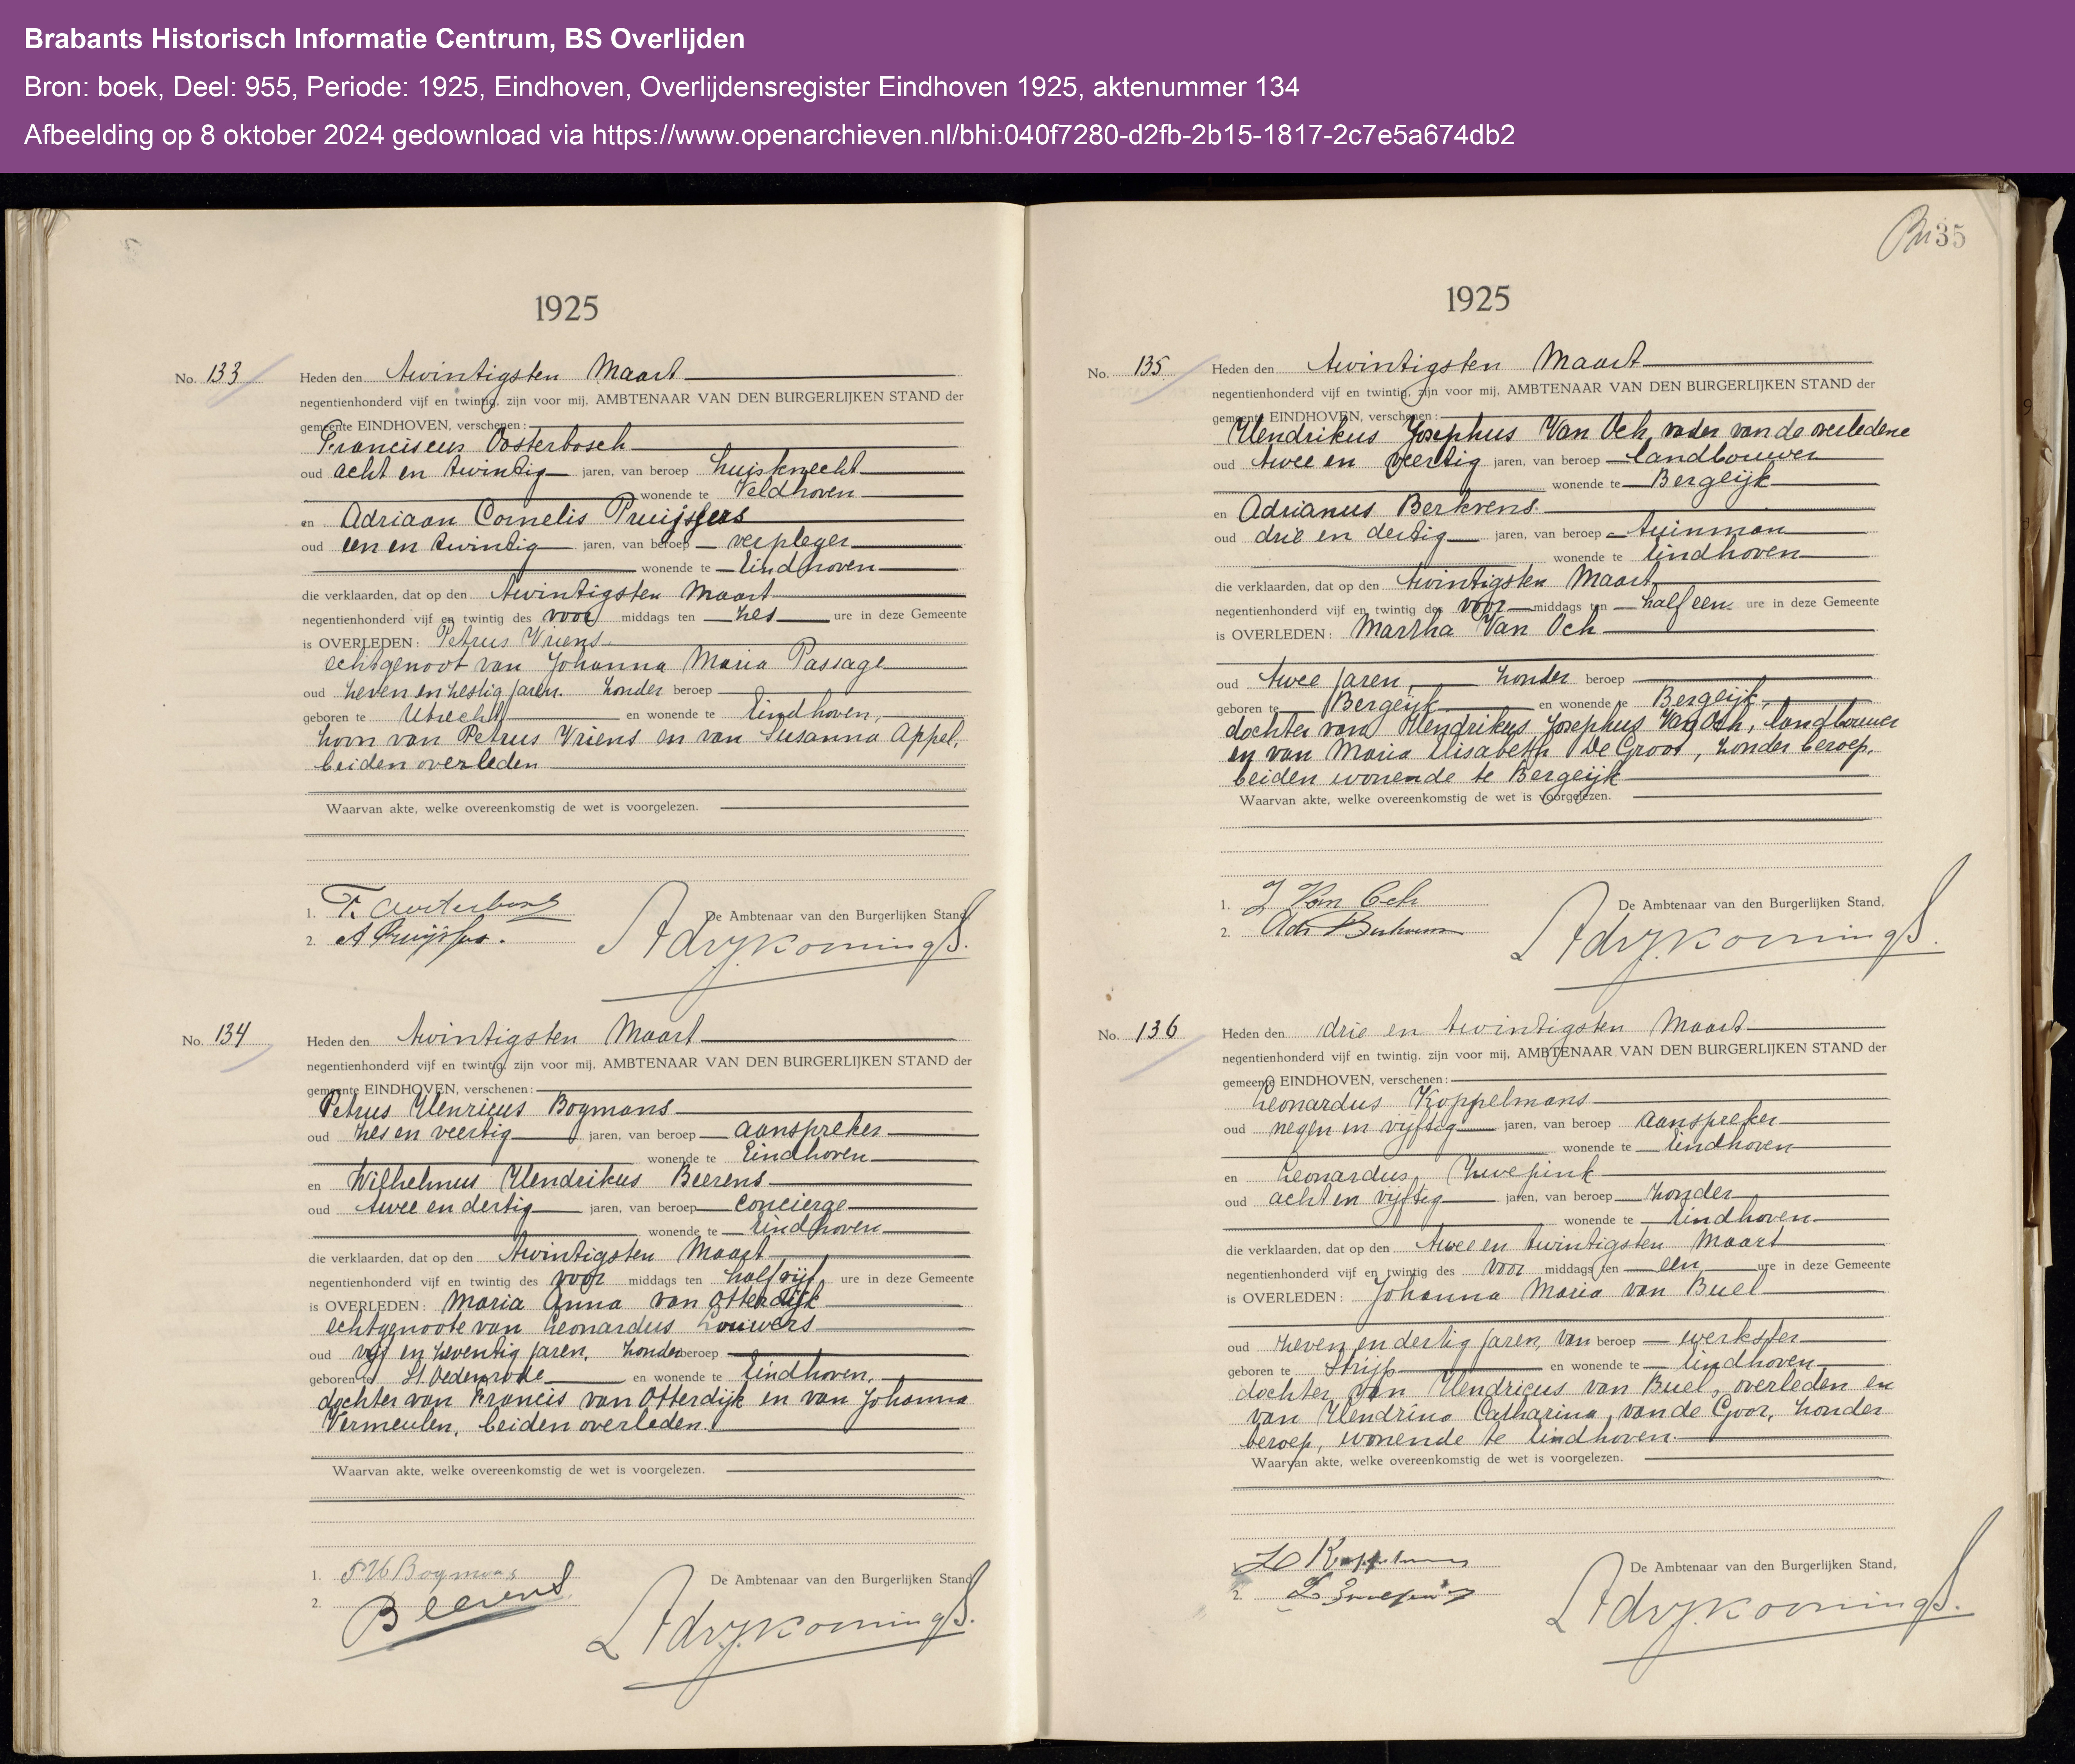 Brabants Historisch Informatie Centrum, BS Overlijden
Bron: boek, Deel: 955, Periode: 1925, Eindhoven, Overlijdensregister Eindhoven 1925, aktenummer 134
Afbeelding op 8 oktober 2024 gedownload via https://www.openarchieven.nl/bhi:040f7280-d2fb-2b15-1817-2c7e5a674db2
1925
No. 133 Heden den twintigsten Maart
negentienhonderd vijf en twintig, zijn voor mij, AMBTENAAR VAN DEN BURGERLIJKEN STAND der
gemeente EINDHOVEN, verschenen:
Franciscus Oosterbosch
oud acht en twintig jaren, van beroep huisknecht
wonende te Veldhoven
en Adriaan Cornelis Pruijssers
oud een en twintig jaren, van beroep verpleger
wonende te Eindhoven
die verklaarden, dat op den twintigsten Maart
negentienhonderd vijf en twintig des voor middags ten zes ure in deze Gemeente
is OVERLEDEN: Petrus Vriens
echtgenoot van Johanna Maria Passage
oud zeven en zestig jaren. zonder beroep
geboren te Utrecht en wonende te Eindhoven,
zoon van Petrus Vriens en van Susanna Appel,
beiden overleden
Waarvan akte, welke overeenkomstig de wet is voorgelezen.
De Ambtenaar van den Burgerlijken Stand,
1. F. Oosterbosch
2. A Pruijssers.
No. 134 Heden den twintigsten Maart
negentienhonderd vijf en twintig, zijn voor mij, AMBTENAAR VAN DEN BURGERLIJKEN STAND der
gemeente EINDHOVEN, verschenen:
Petrus Henricus Bogmans
oud zes en veertig jaren, van beroep aanspreker
wonende te Eindhoven
en Wilhelmus Hendrikus Beerens
oud twee en dertig jaren, van beroep concierge
wonende te Eindhoven
die verklaarden, dat op den twintigsten Maart
negentienhonderd vijf en twintig des voor middags ten half vijf ure in deze Gemeente
is OVERLEDEN: Maria Anna van Otterdijk
echtgenoote van Leonardus Louwers
oud vijf en zeventig jaren, zonder beroep
geboren te St Oedenrode en wonende te Eindhoven,
dochter van Francis van Otterdijk en van Johanna
Vermeulen, beiden overleden.
Waarvan akte, welke overeenkomstig de wet is voorgelezen.
De Ambtenaar van den Burgerlijken Stand,
1. P H Bogmans
2. Beerens
35
1925
No. 135 Heden den twintigsten Maart
negentienhonderd vijf en twintig, zijn voor mij, AMBTENAAR VAN DEN BURGERLIJKEN STAND der
gemeente EINDHOVEN, verschenen:
Hendrikus Josephus Van Och, vader van de overledene
oud twee en veertig jaren, van beroep landbouwer
wonende te Bergeijk
en Adrianus Berkvens
oud drie en dertig jaren, van beroep tuinman
wonende te Eindhoven
die verklaarden, dat op den twintigsten Maart
negentienhonderd vijf en twintig des voor middags ten half een ure in deze Gemeente
is OVERLEDEN: Martha Van Och
oud twee jaren, zonder beroep
geboren te Bergeijk en wonende te Bergeijk,
dochter van Hendrikus Josephus Van Och, landbouwer
en van Maria Elisabeth De Groot, zonder beroep,
beiden wonende te Bergeijk
Waarvan akte, welke overeenkomstig de wet is voorgelezen.
De Ambtenaar van den Burgerlijken Stand,
1. J Van Och
2. Adr Berkvens
No. 136 Heden den drie en twintigsten Maart
negentienhonderd vijf en twintig, zijn voor mij, AMBTENAAR VAN DEN BURGERLIJKEN STAND der
gemeente EINDHOVEN, verschenen:
Leonardus Koppelmans
oud negen en vijftig jaren, van beroep aanspreker
wonende te Eindhoven
en Leonardus
oud acht en vijftig jaren, van beroep zonder
wonende te Eindhoven
die verklaarden, dat op den twee en twintigsten Maart
negentienhonderd vijf en twintig des voor middags ten een ure in deze Gemeente
is OVERLEDEN: Johanna Maria van Buel
oud zeven en dertig jaren, van beroep werkster
geboren te Strijp en wonende te Eindhoven,
dochter van Hendricus van Buel, overleden en
van Hendrina Catharina van de Goor, zonder
beroep, wonende te Eindhoven.
Waarvan akte, welke overeenkomstig de wet is voorgelezen.
De Ambtenaar van den Burgerlijken Stand,
1. L Koppelmans
2. L